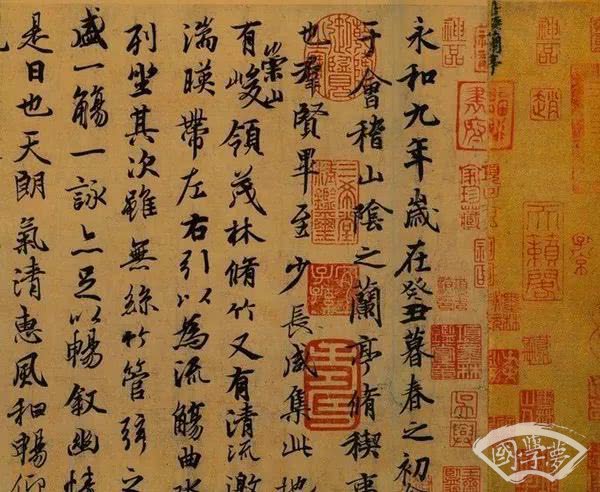 神品
天籟閣
子京
神品
書府
永和九年歲在癸丑暮春之初
于會稽山陰之蘭亭脩稧事
也羣賢畢至少長咸集此地
有崇山峻領茂林脩竹又有清流激
湍暎帶左右引以為流觴曲水
列坐其次雖無絲竹管弦之
盛一觴一詠亦足以暢敘幽情
是日也天朗氣清惠風和暢仰
三希堂精鑑璽
國學夢